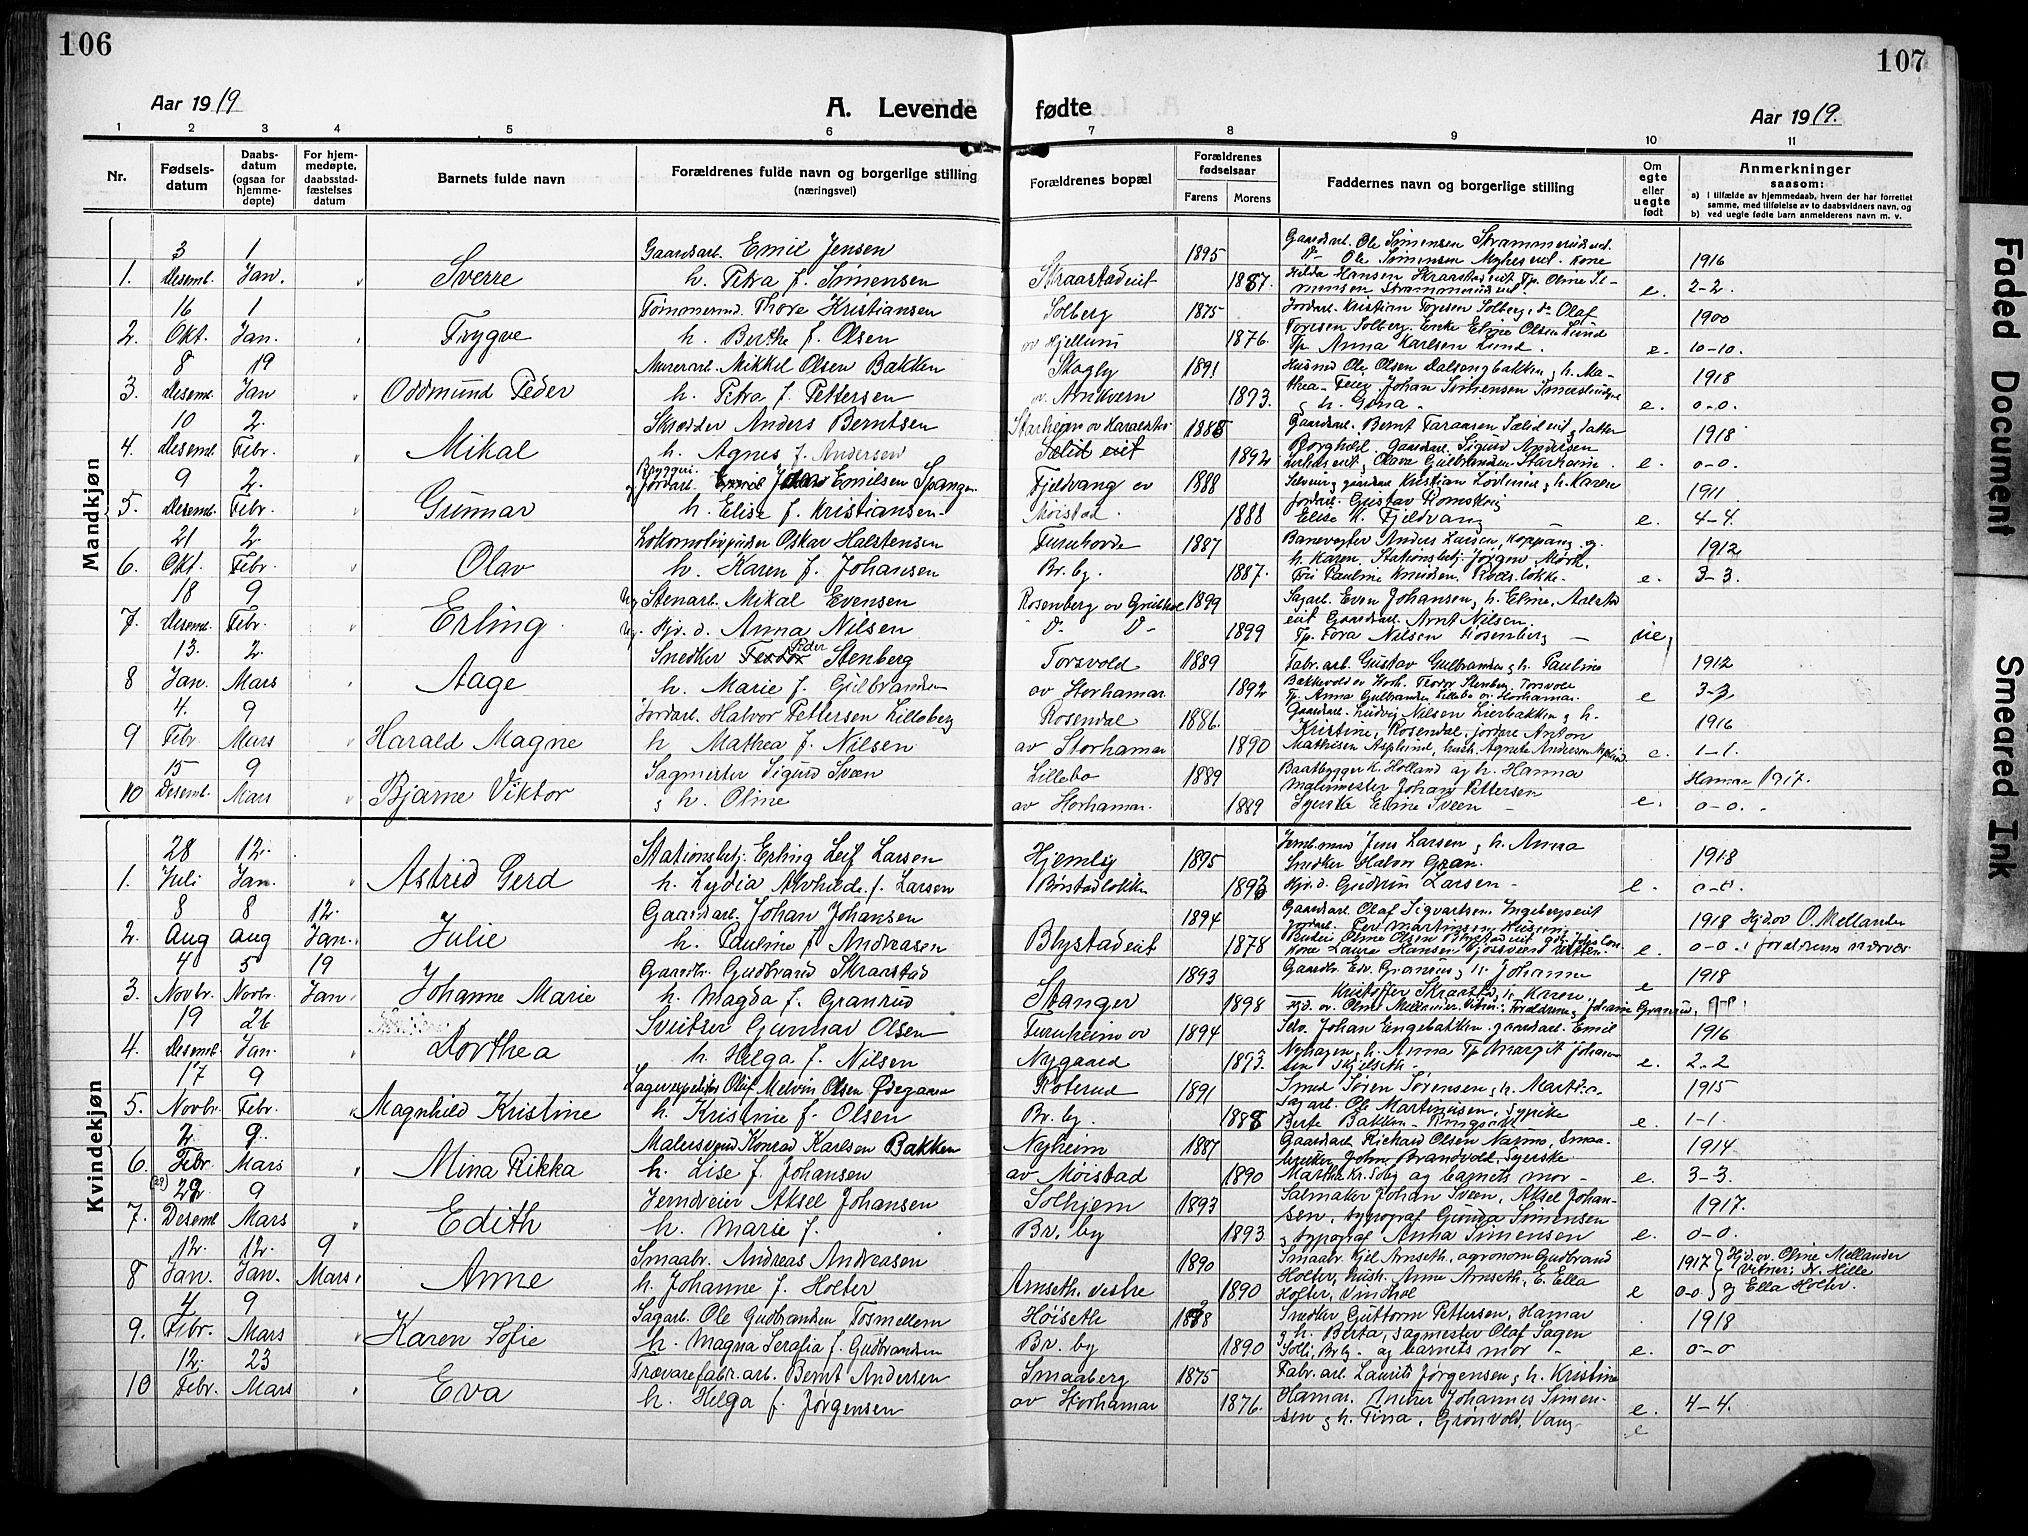 106
107
Aar 1919
A. Levende
fødte
Aar 1919.
1 2 3 4 5 6 7 8 9 10 11
Nr.
Fødsels-
datum
Daabs-
datum
(ogsaa for
hjemme-
døpte)
For hjem-
medøpte,
daabsstad-
fæstelses
datum
Barnets fulde navn
Forældrenes fulde navn og borgerlige stilling
(næringsvei)
Forældrenes bopæl
Forældrenes
fødselsaar
Farens Morens
Faddernes navn og borgerlige stilling
Om
egte
eller
uegte
født
Anmerkninger
saasom:
a) I tilfælde av hjemmedaab, hvem der har forrettet
samme, med tilføielse av to daabsvidners navn, og
b) ved uegte fødte barn anmelderens navn m. v.
Mandkjøn
3 1 Gaardsarb. Emil Jensen 1895 Gaardsarb. Ole Simensen 1916
1. Desemb. Jan. Sverre h. Petra f. Simensen Skraastadeit 1887. Hilda Hansen e. 2-2.
16 1 Tømmermd. Thore Kristiansen Solberg 1875 Jordarb. Kristian Toresen Solberg, do Olaf 1900
2. Okt. Jan. Trygve h. Berthe f. Olsen ov Hjellum 1876. Toresen Solberg, Enke Eline Olsen Lund
Tp. Anna Karlsen Lund. e. 10-10.
8 19 Murerarb. Mikkel Olsen Bakken Skogly 1891 Husmd Ole Olsen Dalsengbakken, h. Ma- 1918
3. Desemb. Jan Oddmund Peder h. Petra f. Pettersen o. Arnkvern 1893. thea - Johan Simensen
& h. Gina - e. 0-0.
10 2. Skrædder Anders Berntsen Starheim 1885 Gaardsarb. Bernt 1918
4. Desemb. Febr. Mikal h. Agnes f. Andersen Sælid eit 1892 Borghild, Gaardsarb. Sigurd Andersen
Olava Gulbrandsen Starheim. e. 0-0.
9 2. Jordarb. Emilsen Spangen Fjeldvang ov 1888 Kristian h. Karen 1911
5. Desemb. Febr. Gunnar h. Elise f. Kristiansen- Moistad. 1888 Jordarb. Gustav
Elise K. Fjeldvang e. 4-4.
21 2. Lokomotivpudser Oskar Halstensen Furuhovde 1887 Banevogter Anders Larsen, Koppang, og 1912
6. Okt. Febr. Olav h. Karen f. Johansen Br. by. 1887. h. Karen. Stationsbetj. Jørgen Mørk.
Frk Pauline Knudsen. e. 3-3.
18 9 Ug. Stenarb. Mikal Evensen Rosenberg ov 1899 Sagarb. Even Johansen, h. Eline, Aalstad
7. Desemb. Febr. Erling. Ug. Hjv. d. Anna Nilsen D- D- 1899 eit Gaardsarb. Arnt Nilsen
Tp. Tora Nilsen Rosenberg - ue,
13. 2. Snedker Peder Stenberg Torsvold 1889 Fabr. arb. Gustav Gulbrandsen, h. Pauline 1912
8 Jan. Mars Aage h. Marie f. Gulbrandsen ov Storhamar 1892 Bakkevold ov Storh. Teodor Stenberg, Torsvold
Tp. Anna Gulbrandsen Lillebo ov. Storhamar. e 3-3
4. 9 Jordarb. Halvor Pettersen Lilleberg Rosendal 1886. Gaardsarb. Ludvig Nilsen Lierbakken, h. 1916
9 Febr. Mars Harald Magne h Mathea f. Nilsen av Storhamar 1890 Kristine, Rosendal, jordarb. Anton
Mathisen Asplund, hush. Agnete Andersen e. 1-1.
15 9 Sagmester Sigurd Sveen Lillebo 1889 Baatbygger K. Holland og h. Hanna Hamar 1917.
10 Desemb. Mars Bjarne Viktor & h. Oline av Storhamar. 1889 Malermester Johan Pettersen
Syerske Eline Sveen - e. 0-0. -
Kvindekjøn
28 12. Stationsbetj. Erling Leif Larsen Hjemly 1895 Jernb.mand Jens Larsen, h. Anna 1918
1. Juli Jan. Astrid Gerd h. Lydia Alvhilde f. Larsen Børstadlokken 1893 Snedker Halvor Gran.
Hjv.d. Gudrun Larsen - e. 0-0.
8 8 12. Gaardsarb. Johan Johansen 1894 Gaardsarb. Olaf Sigvartsen, Ingebergseit 1918 Hjd.ov O. Mellander
2. Aug Aug Jan. Julie h. Pauline f. Andreasen Blystadeit 1878 Jordarb. Peder Martinsen
Laura Hansen e. 0-0. i forældrenes nærvær
4 5 19 Gaardbr. Gudbrand Skraastad 1893 Gaardbr. Edv. Granrud, h. Johanne 1918
3. Novbr. Novbr. Jan. Johanne Marie h. Magda f. Granrud Stanger 1898 Kristoffer Skraastad, h. Karen. e
Hjd. ov. Oline Mellander. Vidner: Forældrene, Johanne Granrud.
19 26 Sveitser Gunnar Olsen Furuheim ov 1894 Selv. Johan Engebakken, gaardsarb. Emil 1916
4. Desemb. Jan. Dorthea h. Helga f. Nilsen Nygaard 1893. Nyhagen, h. Anna Tp Margit Johan-
sen Skjelseth. e. 2-2
17 9 Lagerexpeditør Oluf Melvin Olsen Ødegaard Roterud 1891 Smed Søren Sørensen, h. Martha. 1915
5. Novbr. Febr. Magnhild Kristine h. Kristine f. Olsen Br. by. 1888 Sagarb. Ole Martinsen, Syerske
Berte Bakken - Ringsaker e. 1-1.
2. 9. Malersvend Konrad Karlsen Bakken Nyheim 1887 Gaardsarb. Rickard Olsen Narmo, Smaa- 1914
6. Febr. Mars Mina Rikka h. Lise f. Johansen av Moistad 1890 bruker John Brandvold, Syerske
Martha Kr. Soby og barnets mor - e. 3-3.
(29) 29 9 Jerndreier Aksel Johansen Solhjem 1893 Salmaker Johan Sveen, Aksel Johan- 1917.
7. Desemb Mars Edith h. Marie f. Br. by 1893. sen, typograf Gunda Simensen
& typograf Anna Simensen e. 0-0.
12. 12. 9 Smaabr. Andreas Andreasen 1890 Smaabr. Kjel Arnseth, agronom Gudbrand 1917 Hjd. ov. Oline Mellander
8 Jan. Jan. Mars. Anne h. Johanne f. Holter Arnseth vestre 1890 Holter, hush. Anne Arnseth, E. Ella Vitner: N. Hille
Holter, Vinthol e 0-0. og Ella Holter.
4 9 Sagarb. Ole Gudbrandsen Tosmellem Høiseth 1888 Snedker Guttorm Pettersen, Hamar 1918
9. Febr. Mars Karen Sofie h. Magna Serafia f. Gudbrandsen Br. by 1890 & h. Berta, sagmester Olaf Sagen
Solli, Br.by - og barnets mor - e. 0-0
12. 23 Trævarefabr.arb. Bernt Andersen Smaaberg 1875 Fabr. arb. Laurits Jørgensen, h. Kristine
10 Febr. Mars Eva h. Helga f. Jørgensen ov Storhamar 1876. Hamar. Johannes Simen- e. 4-4.
sen, h. Tina, Grønvold, Vang - e
Faded Document
Smeared Ink